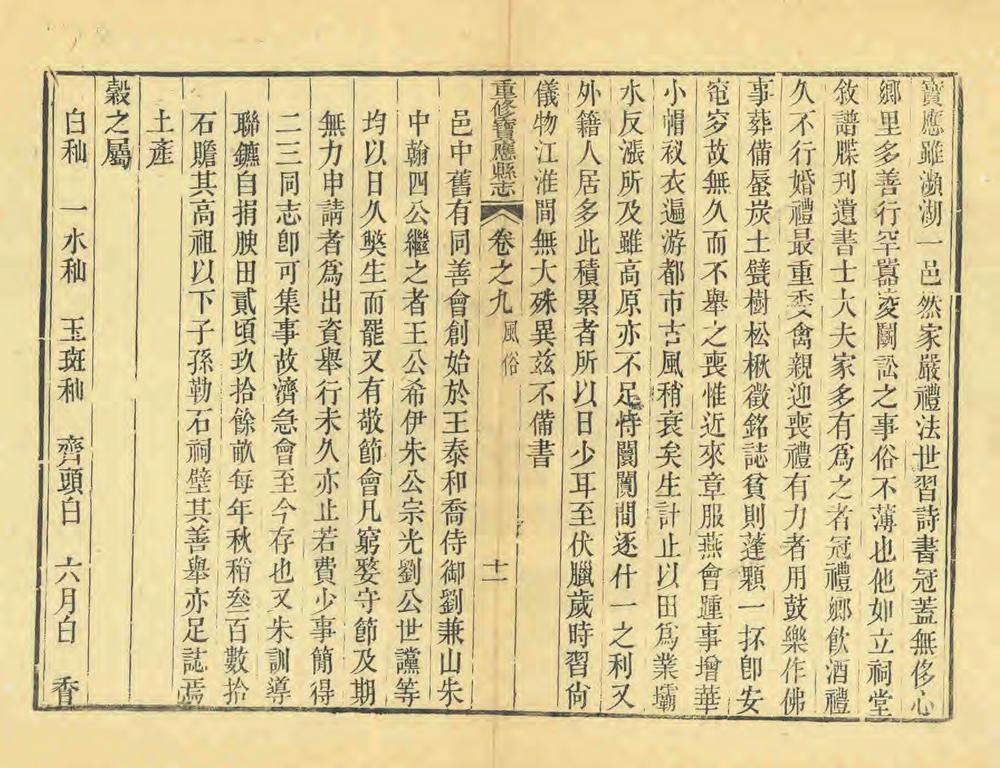 寶應雖瀕湖一邑然家嚴禮法世習詩書冠蓋無侈心
鄉里多善行罕嚚凌鬬訟之事俗不薄也他如立祠堂
敘譜牒刋遺書士大夫家多有爲之者冠禮鄉飲酒禮
久不行婚禮最重委禽親迎喪禮有力者用鼓樂作佛
事葬備蜃炭土甓樹松楸徵銘誌貧則蓬顆一抔卽安
窀穸故無久而不舉之喪惟近來章服燕會踵事增華
小帽衩衣遍游都市古風稍衰矣生計止以田爲業壩
水反漲所及雖高原亦不足恃闤闠間逐什一之利又
外籍人居多此積累者所以日少耳至伏臘歲時習尙
儀物江淮間無大殊異茲不備書
重修寶應縣志 卷之九 風俗 十一
邑中舊有同善會創始於王泰和喬侍御劉兼山朱
中翰四公繼之者王公希伊朱公宗光劉公世讜等
均以日久獘生而罷又有敬節會凡窮嫠守節及期
無力申請者爲出資舉行未久亦止若費少事簡得
二三同志卽可集事故濟急會至今存也又朱訓導
聯鑣自捐腴田貳頃玖拾餘畝每年秋稻叁百數拾
石贍其高祖以下子孫勒石祠壁其善舉亦足誌焉
土產
穀之屬
白秈 一水秈 玉斑秈 齊頭白 六月白 香